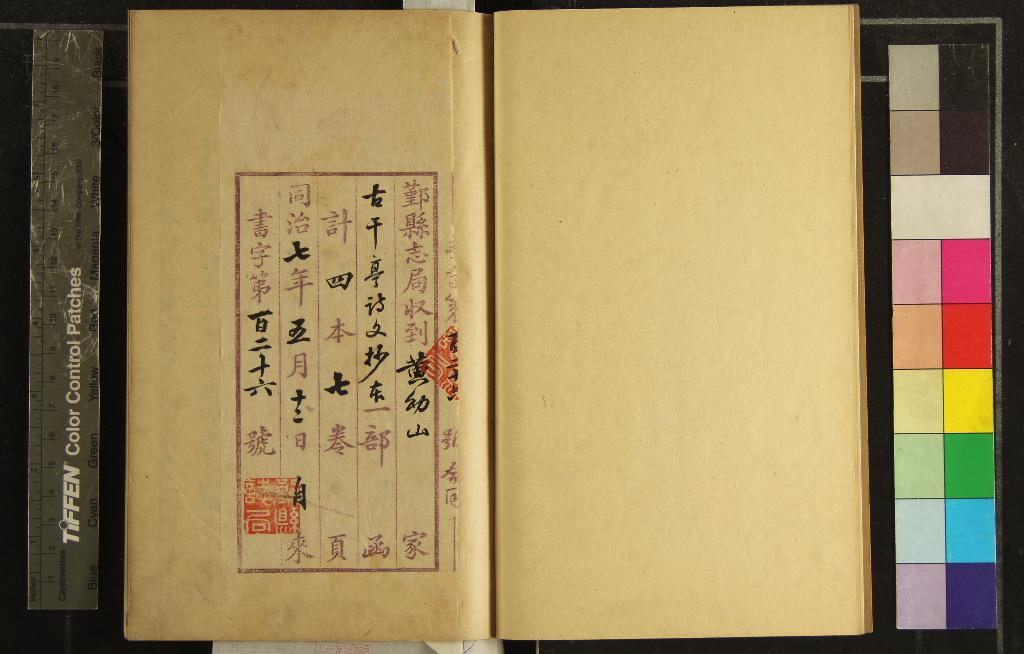 鄞縣志局收到黃幼山家
古干亭詩文抄本一部函
計四本七卷頁
同治七年五月十二日 來
書字第百二十六號
TIFFEN Color Control Patches
© The Tiffen Company, 2007
Inches
Centimetres
Blue
Cyan
Green
Yellow
Red
Magenta
White
3/Color
Black